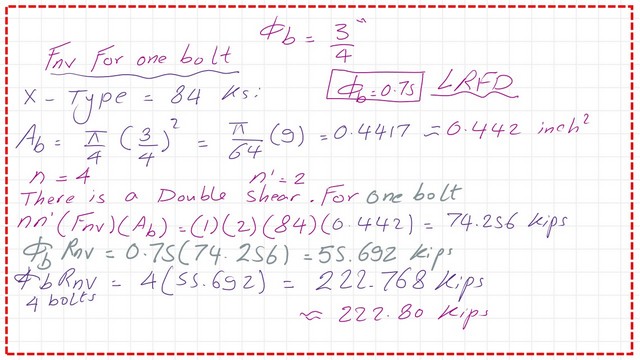 Φb = 3"/4
Fnv For one bolt
Φb = 0.75 LRFD
X - Type = 84 Ksi
Ab = π/4 (3/4)² = π/64 (9) = 0.4417 ≈ 0.442 inch²
n = 4 n' = 2
There is a Double shear. For one bolt
nn' (Fnv) (Ab) = (1) (2) (84) (0.442) = 74.256 kips
Φb Rnv = 0.75 (74.256) = 55.692 kips
Φb Rnv = 4 (55.692) = 222.768 kips
4 bolts
≈ 222.80 kips